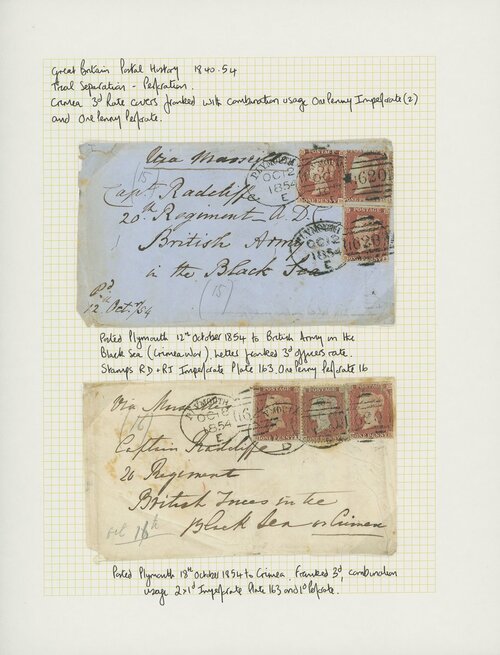 Great Britain Postal History 1840-54
Trial Separation - Perforation.
Crimea 3d Rate covers franked with combination usage One Penny Imperforate (2)
and One Penny Perforate.
Via Marseilles
Capt Radcliffe
20th Regiment A.D.C
British Army
in the Black Sea
Pd
12 Oct /54
15
15
PLYMOUTH
OC 12
1854
E
620
PLYMOUTH
OC 12
1854
E
620
Posted Plymouth 12th October 1854 to British Army in the
Black Sea (Crimea War). Letter franked 3d officers rate.
Stamps RD + RI Imperforate Plate 163. One Penny Perforate 16
Via
16
PLYMOUTH
1854
E
Captain Radcliffe
20 Regiment
British Forces in the
Black Sea or Crimea
Oct 18th
Posted Plymouth 18th October 1854 to Crimea. Franked 3d, combination
usage 2x1d Imperforate Plate 163 and 1d Perforate.